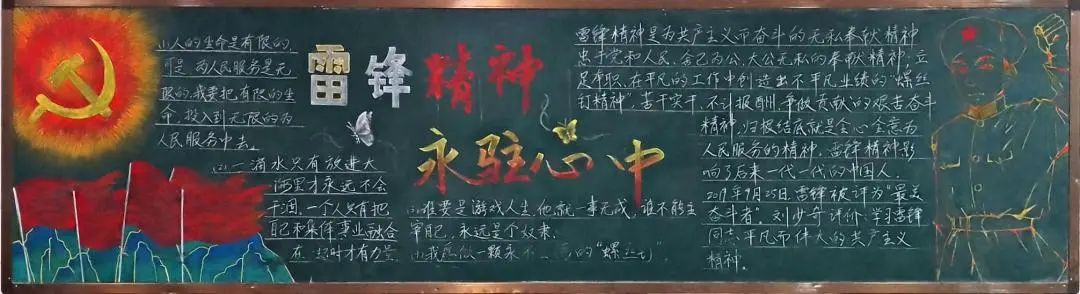 雷锋精神
永驻心中
(1)人的生命是有限的,
可是,为人民服务是无
限的,我要把有限的生
命,投入到无限的为
人民服务中去。
(2)一滴水只有放进大
海里才永远不会
干涸,一个人只有把
自己和集体事业融合
在一起时才有力量
(3)谁要是游戏人生,他就一事无成,谁不能主
宰自己,永远是个奴隶。
(4)我愿做一颗永不 的“螺丝钉”。
雷锋精神是为共产主义而奋斗的无私奉献精神
忠于党和人民、舍己为公、大公无私的奉献精神;立
足本职、在平凡的工作中创造出不平凡业绩的“螺丝
钉精神”,苦干实干,不计报酬,争做贡献的艰苦奋斗
精神,归根结底就是全心全意为
人民服务的精神,雷锋精神影
响了后来一代一代的中国人。
2019年9月25日,雷锋被评为“最美
奋斗者”,刘少奇评价:学习雷锋
同志平凡而伟大的共产主义
精神。